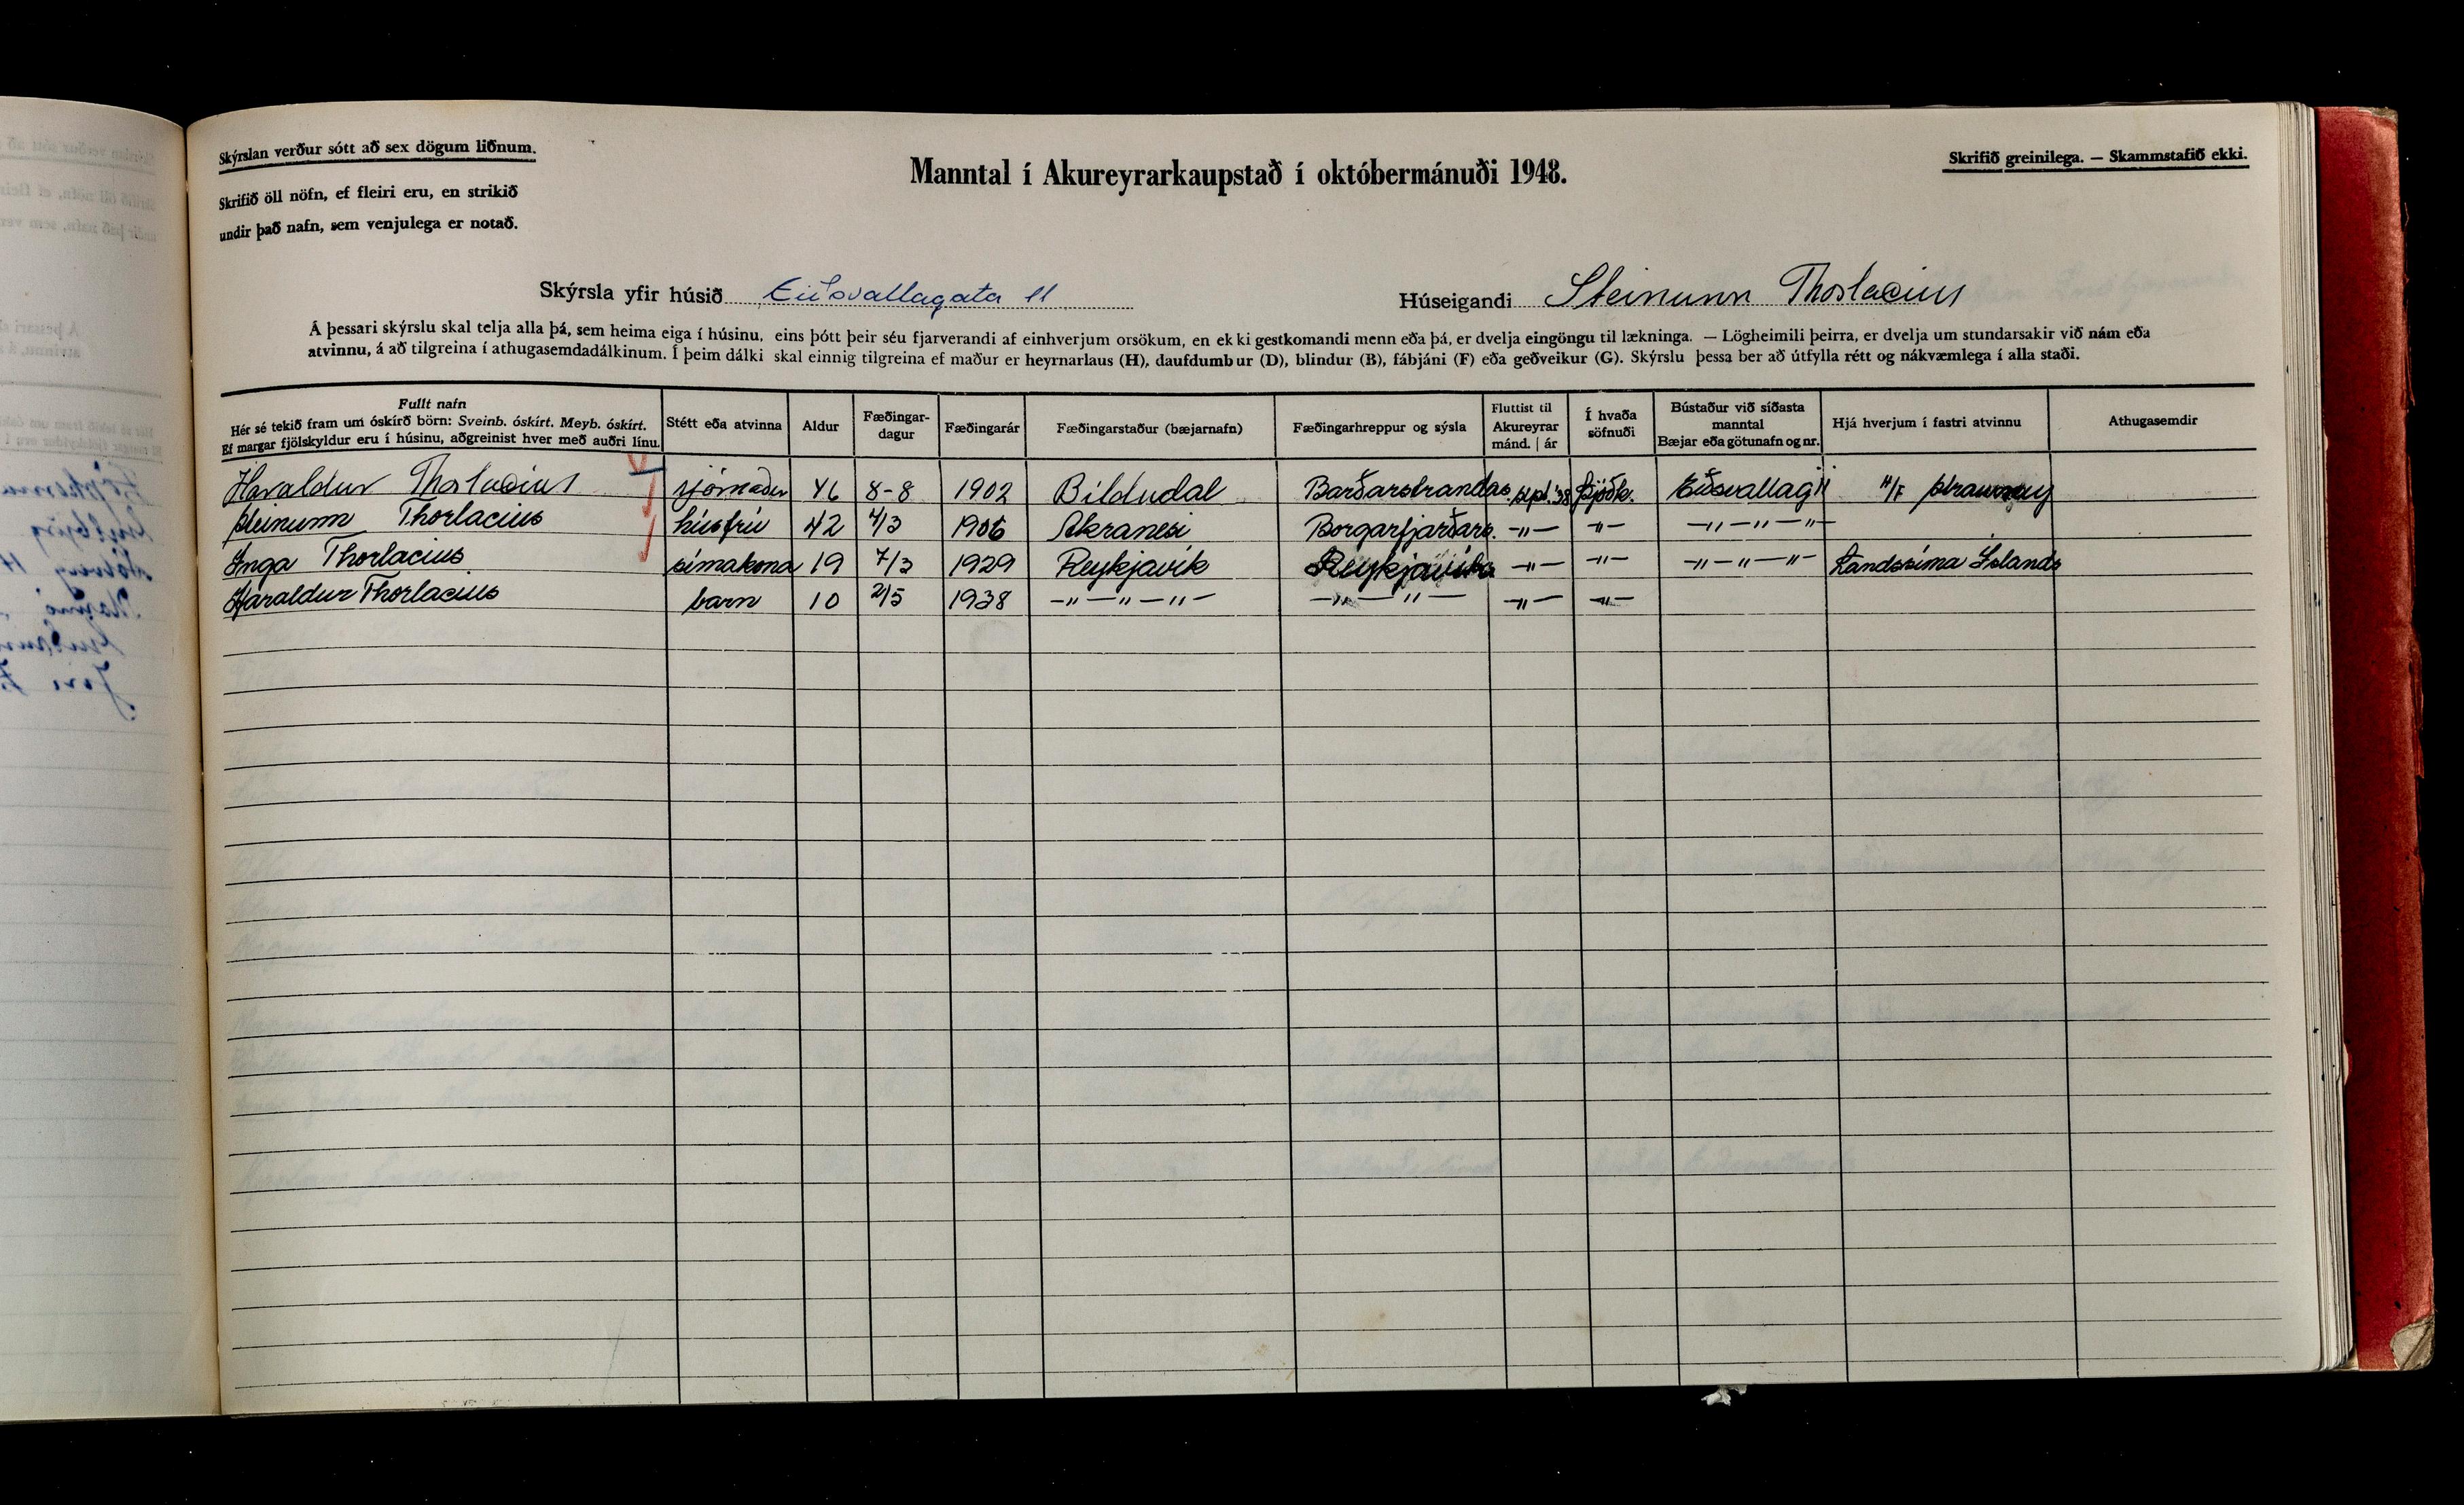 Skýrslan verður sótt að sex dögum liðnum.
Skrifið öll nöfn, ef fleiri eru, en strikið
undir það nafn, sem venjulega er notað.
Manntal í Akureyrarkaupstað í októbermánuði 1948.
Skrifið greinilega. — Skammstafið ekki.
Skýrsla yfir húsið Eiðsvallagata 11
Húseigandi Steinunn Thorlacius
Á þessari skýrslu skal telja alla þá, sem heima eiga í húsinu, eins þótt þeir séu fjarverandi af einhverjum orsökum, en ekki gestkomandi menn eða þá, er dvelja eingöngu til lækninga. — Lögheimili þeirra, er dvelja um stundarsakir við nám eða
atvinnu, á að tilgreina í athugasemdadálkinum. Í þeim dálki skal einnig tilgreina ef maður er heyrnarlaus (H), daufdumbur (D), blindur (B), fábjáni (F) eða geðveikur (G). Skýrslu þessa ber að útfylla rétt og nákvæmlega í alla staði.
Fullt nafn
Hér sé tekið fram um óskírð börn: Sveinb. óskírt. Meyb. óskírt.
Ef margar fjölskyldur eru í húsinu, aðgreinist hver með auðri línu.
Stétt eða atvinna
Aldur
Fæðingar-
dagur
Fæðingarár
Fæðingarstaður (bæjarnafn)
Fæðingarhreppur og sýsla
Fluttist til
Akureyrar
mánd. | ár
Í hvaða
söfnuði
Bústaður við síðasta
manntal
Bæjar eða götunafn og nr.
Hjá hverjum í fastri atvinnu
Athugasemdir
Haraldur Thorlacius sjómaður 46 8-8 1902 Bíldudal Barðarstrandas. sept. '38 Þjóðk. Eiðsvallag 11 H/F
Steinunn Thorlacius húsfrú 42 4/3 1906 Akranesi Borgarfjarðars. -"- -"- -"-"-"-
Inga Thorlacius símakona 19 7/3 1929 Reykjavík Reykjavík -"- -"- -"-"-"- Landssíma Íslands
Haraldur Thorlacius barn 10 2/5 1938 -"-"-"- -"-"- -"- -"-